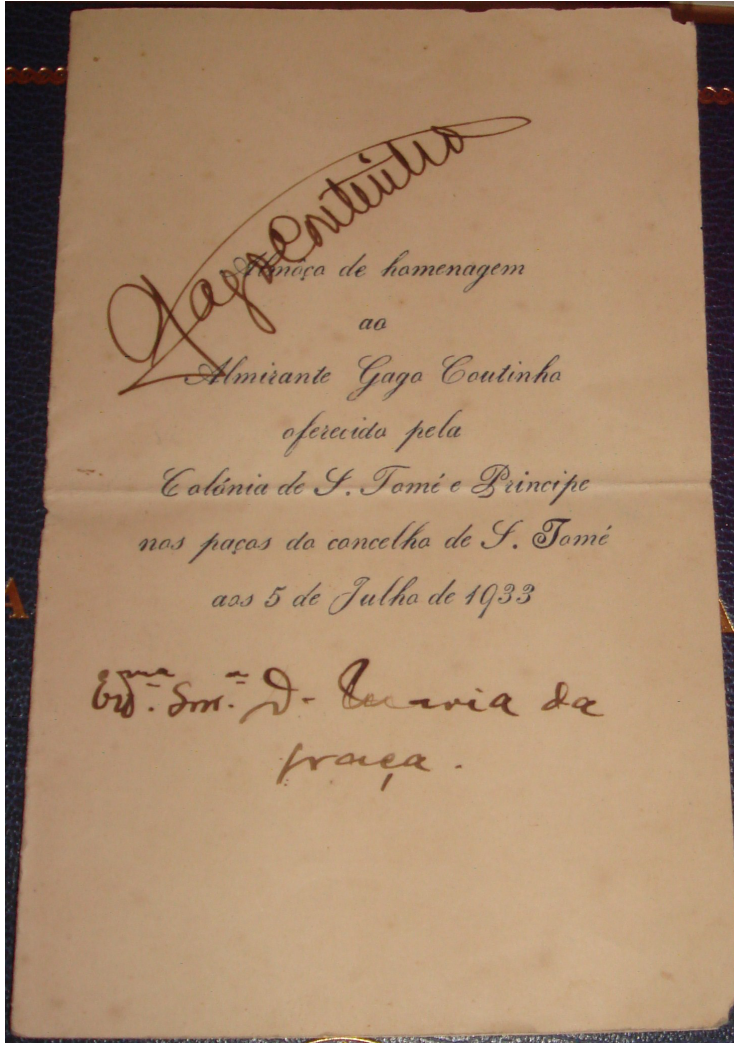 Gago Coutinho
Almôço de homenagem
ao
Almirante Gago Coutinho
oferecido pela
Colónia de S. Tomé e Principe
nos paços do concelho de S. Tomé
aos 5 de Julho de 1933
Exma. Snr.a D. Maria da
Graça.